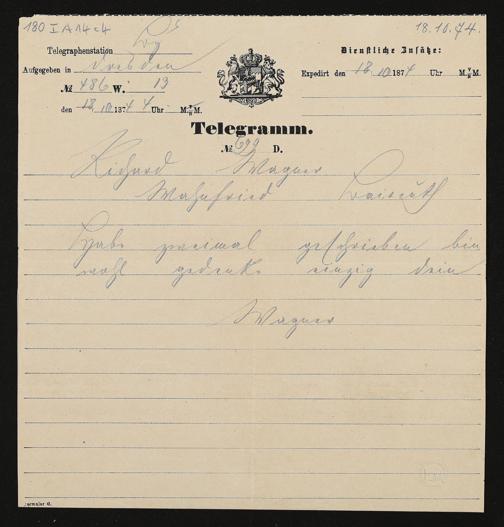 180 I A 14 c 4
18.10.74.
Telegraphenstation By
Dienstliche Zusätze:
Aufgegeben in Dresden
Expedirt den 18.10 1874 Uhr M. V/N M.
№ 486 W. 13
den 18.10 1874 4 Uhr M. V/N M.
Telegramm.
№ 699 D.
Richard Wagner
Wahnfried Baireuth
Habe zweimal geschrieben bin
wohl gedenke einzig dein
Wagner